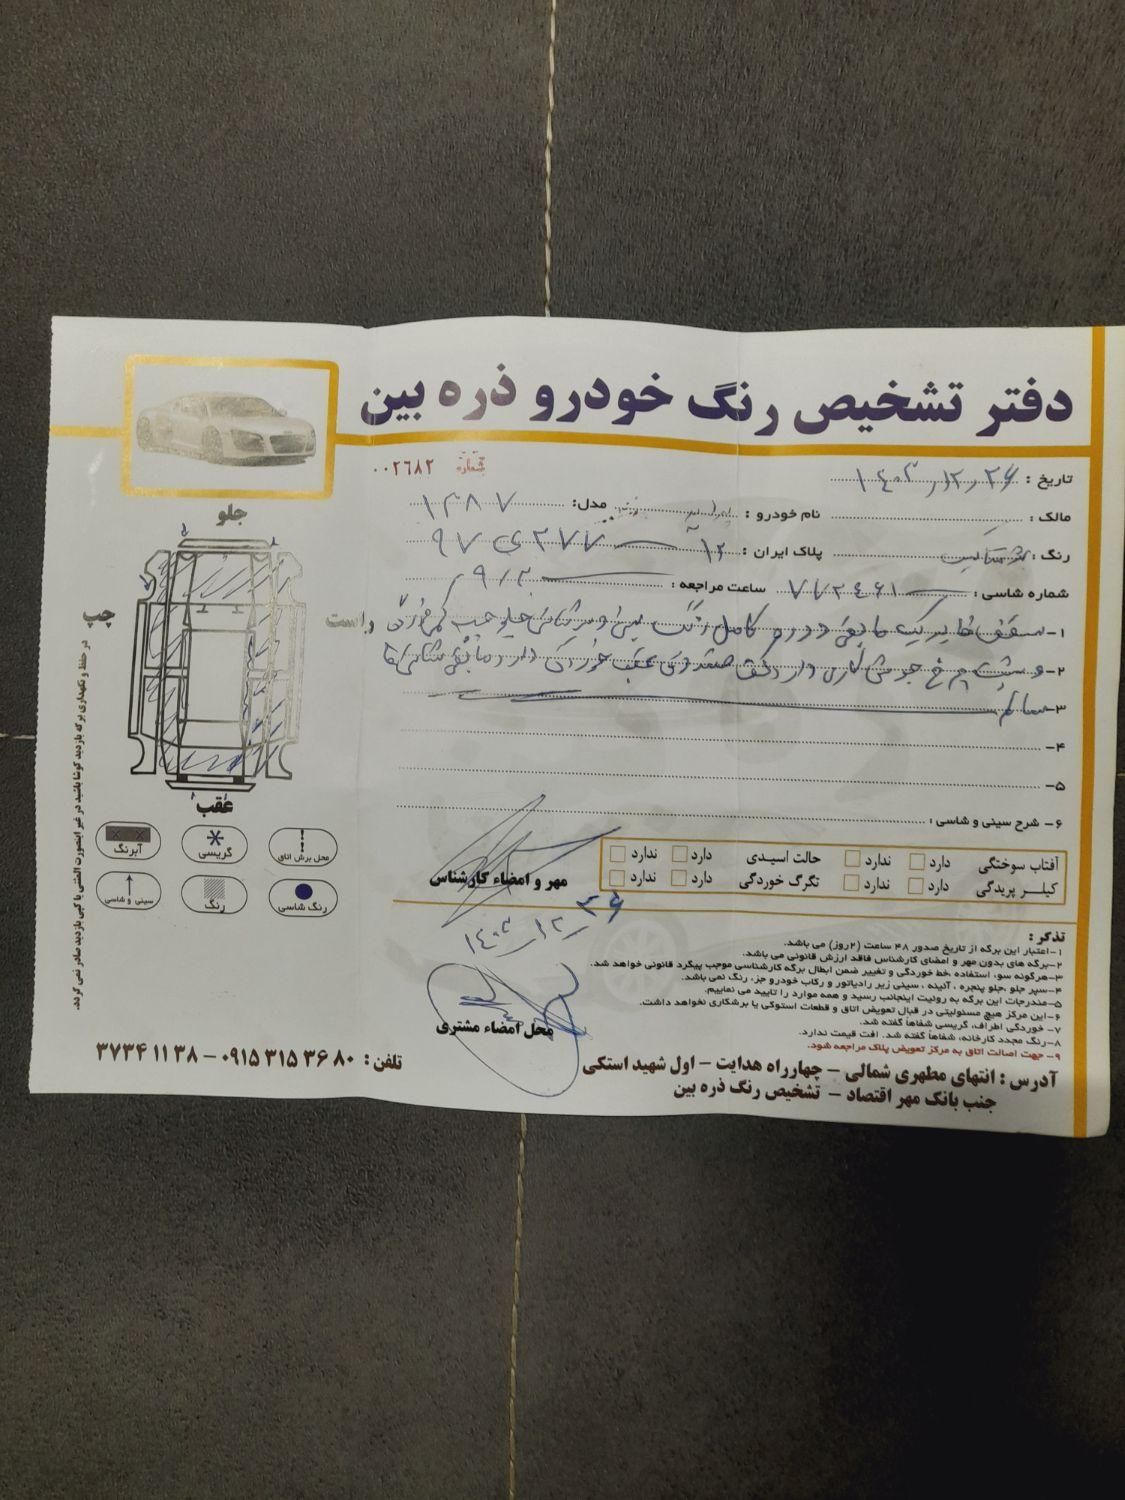 دفتر تشخیص رنگ خودرو ذره بین
شماره ۰۰۲۶۸۲
تاریخ : ۱۴۰۳/۱۲/۲۶
مالک : نام خودرو : مدل: ۱۳۸۷
رنگ : پلاک ایران : ۱۲ ۲۷۷ ی ۹۷
شماره شاسی : ساعت مراجعه : ۹/۲۰
۱- سقف کامل رنگ
۲- و پشت چرخ جوشکاری دارد کف صندوق عقب خوردگی دارد مابقی شاسی ها
۳- سالم
۴-
۵-
۶- شرح سینی و شاسی :
آفتاب سوختگی دارد ندارد حالت اسیدی دارد ندارد
کیلـر پریدگی دارد ندارد تگرگ خوردگی دارد ندارد
مهر و امضاء کارشناس
۱۴۰۳/۱۲/۲۶
محل امضاء مشتری
تذکر :
۱-اعتبار این برگه از تاریخ صدور ۴۸ ساعت (۲روز) می باشد.
۲-برگه های بدون مهر و امضای کارشناس فاقد ارزش قانونی می باشد.
۳-هرگونه سوء استفاده ،خط خوردگی و تغییر ضمن ابطال برگه کارشناسی موجب پیگرد قانونی خواهد شد.
۴-سپر جلو ،جلو پنجره ، آئینه ، سینی زیر رادیاتور و رکاب خودرو جزء رنگ نمی باشد.
۵-مندرجات این برگه به رولیت اینجانب رسید و همه موارد را تایید می نماییم.
۶-این مرکز هیچ مسئولیتی در قبال تعویض اتاق و قطعات استوکی یا برشکاری نخواهد داشت.
۷- خوردگی اطراف، گریسی شفاهاً گفته شد.
۸-رنگ مجدد کارخانه، شفاهاً گفته شد. افت قیمت ندارد.
۹- جهت اصالت اتاق به مرکز تعویض پلاک مراجعه شود.
آدرس : انتهای مطهری شمالی – چهارراه هدایت – اول شهید استکی
جنب بانک مهر اقتصاد – تشخیص رنگ ذره بین
تلفن : ۰۹۱۵ ۳۱۵ ۳۶ ۸۰ – ۳۷۳۴ ۱۱ ۳۸
جلو
چپ
راست
عقب
محل برش اتاق
گریسی
آبرنگ
رنگ شاسی
رنگ
سینی و شاسی
در حفظ و نگهداری برگه بازدید کوشا باشید در غیر اینصورت المثنی یا کپی بازدید صادر نمی گردد.